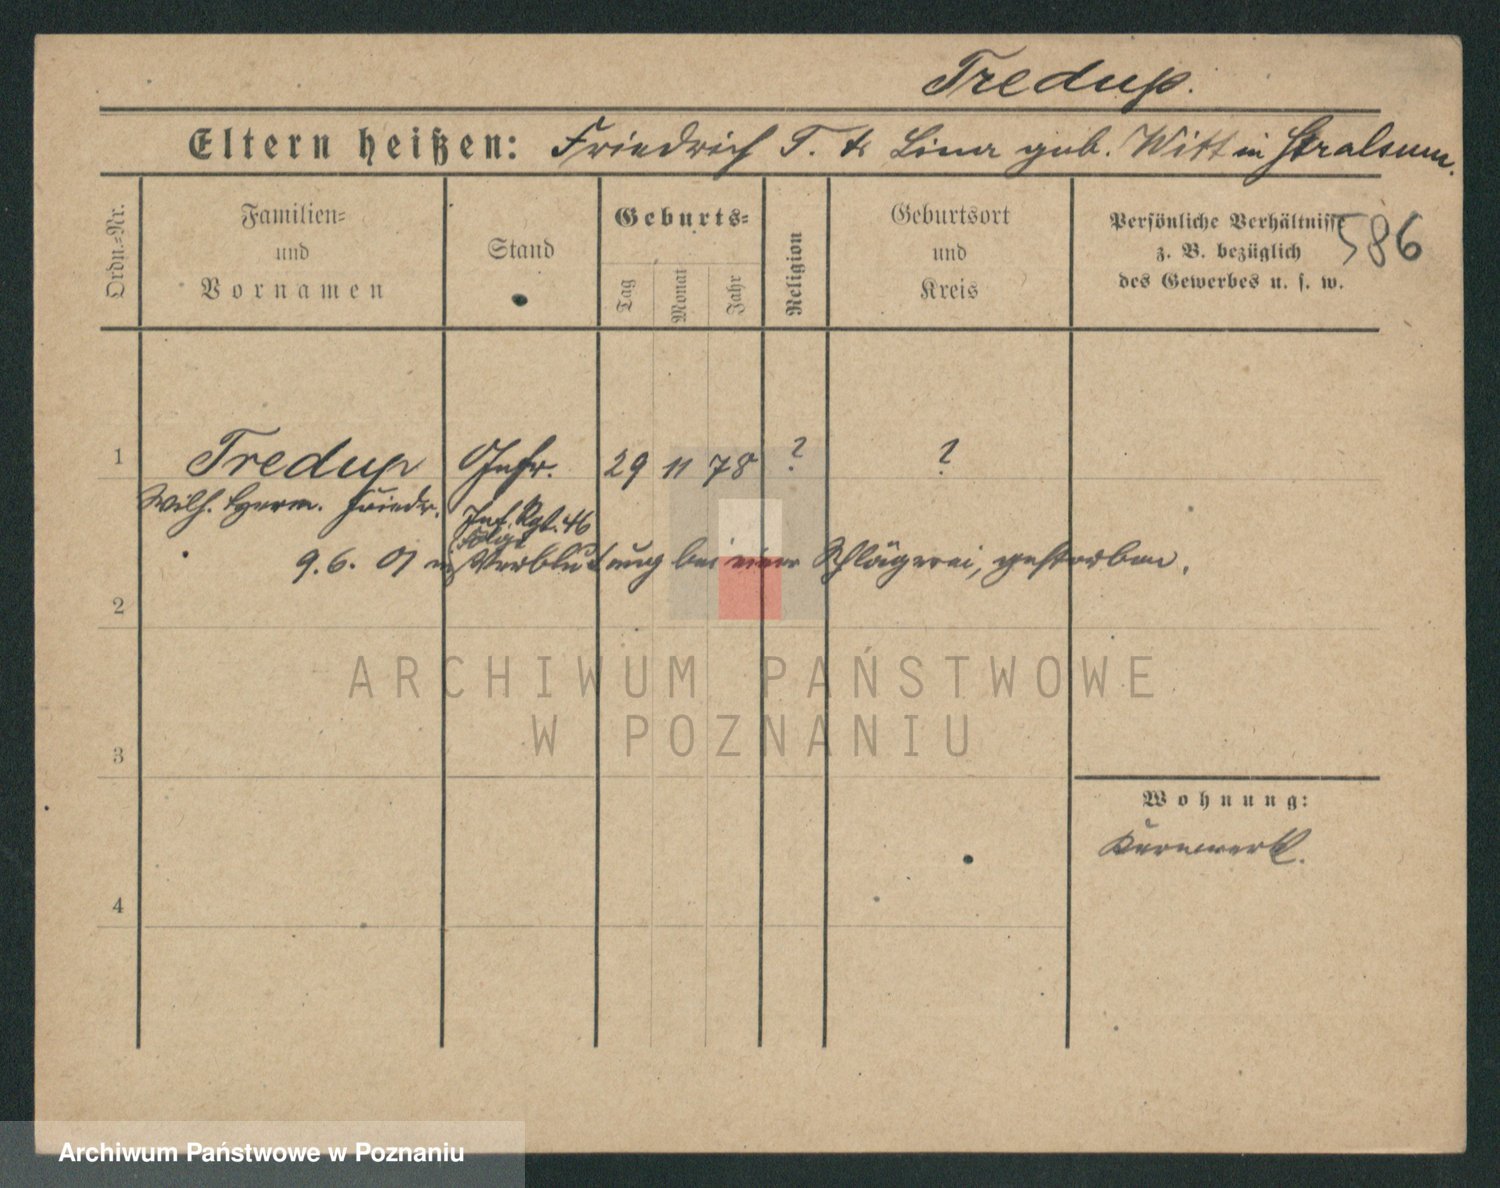 Tredup.
Eltern heißen: Friedrich T. & Lina geb. Witt in Stralsum.
Ordn.=Nr.
Familien=
und
Vornamen
Stand
Geburts=
Tag
Monat
Jahr
Religion
Geburtsort
und
Kreis
Persönliche Verhältnisse
z. B. bezüglich
des Gewerbes u. s. w.
586
1 Tredup 29 11 78 ? ?
Wilh. Herm. Friedr. Inf. Rgt. 46
folge
9. 6. 01 Verblutung bei einer Schlägerei, gestorben.
2
3
4
Wohnung:
Kernwerk.
ARCHIWUM PAŃSTWOWE
W POZNANIU
Archiwum Państwowe w Poznaniu